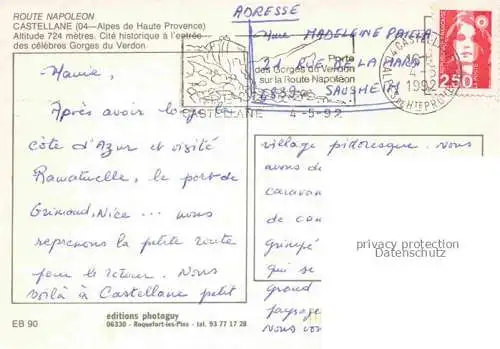 ROUTE NAPOLEON
CASTELLANE (04—Alpes de Haute Provence)
Altitude 724 mètres. Cité historique à l'entrée
des célèbres Gorges du Verdon
ADRESSE
Mme MADELEINE
21 RUE DE LA HARD
68390 SAUSHEIM
Porte
des Gorges du Verdon
sur la Route Napoléon
CASTELLANE 4-5-92
04 CASTELLANE
4-5
1992
ALPES DE HTE PROV
2,50
Mamie,
Après avoir longé la
côte d'Azur et visité
Ramatuelle, le port de
Grimaud, Nice... nous
reprenons la petite route
pour le retour. Nous
voilà à Castellane petit
village pittoresque. Nous
avons d
caravan
de cam
grimpé
qui se
grand
paysage
Nous vou
privacy protection
Datenschutz
EB 90
editions photoguy
06330 - Roquefort-les-Pins - tel. 93 77 17 28